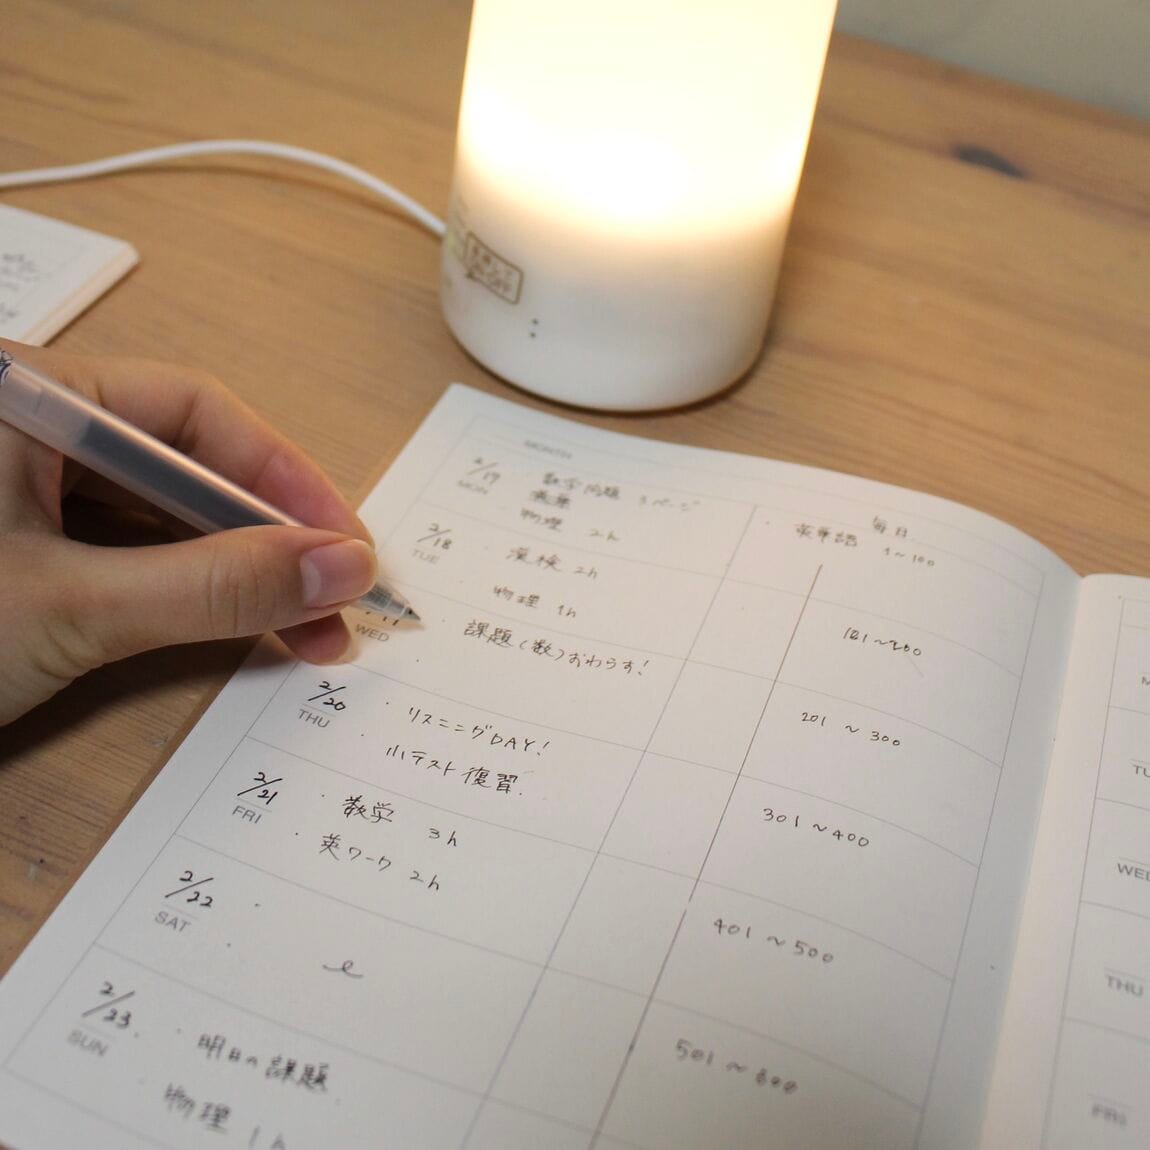 MONTH
2/17 MON
数学問題 3ページ
物理 2h
2/18 TUE
漢検 2h
物理 1h
WED
課題(数)おわらす!
2/20 THU
リスニングDAY!
小テスト復習.
2/21 FRI
数学 3h
英ワーク 2h
2/22 SAT
2/23. SUN
明日の課題
物理 1h
毎日
英単語 1~100
101~200
201~300
301~400
401~500
501~600
TU
WED
THU
FRI